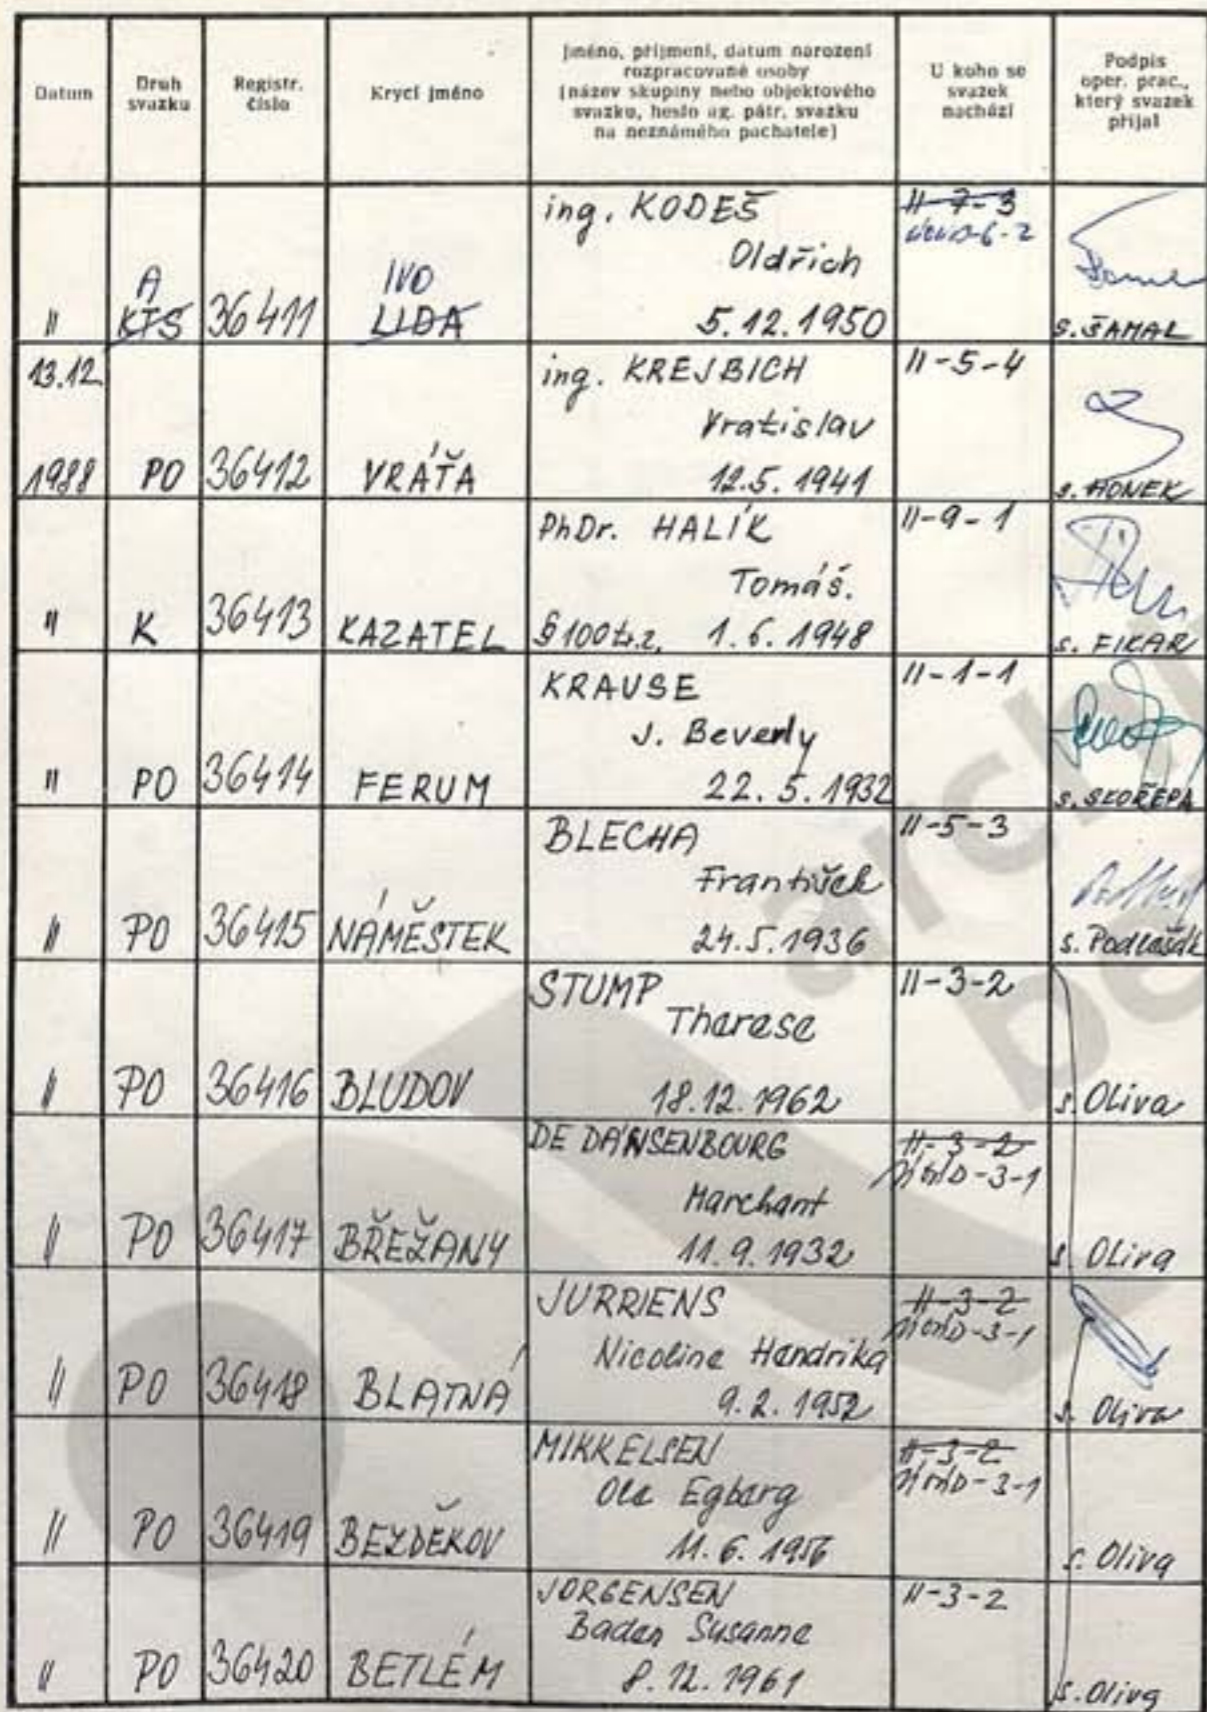 Datum
Druh
svazku
Registr.
číslo
Krycí jméno
Jméno, příjmení, datum narození
rozpracované osoby
(název skupiny nebo objektového
svazku, heslo ag. pátr. svazku
na neznámého pachatele)
U koho se
svazek
nachází
Podpis
oper. prac.,
který svazek
přijal
ing. KODEŠ
Oldřich
5.12.1950
"
A
KTS
36411
IVO
LIDA
II-7-3
s. ŠAMAL
13.12.
1988
PO
36412
VRÁŤA
ing. KREJBICH
Vratislav
12.5.1941
II-5-4
s. HONEK
"
K
36413
KAZATEL
PhDr. HALÍK
Tomáš.
§ 100 tr.z. 1.6.1948
II-9-1
s. FIKAR
"
PO
36414
FERUM
KRAUSE
J. Beverly
22.5.1932
II-1-1
s. SKOŘEPA
"
PO
36415
NÁMĚSTEK
BLECHA
František
24.5.1936
II-5-3
s. Podlešák
"
PO
36416
BLUDOV
STUMP
Therese
18.12.1962
II-3-2
s. Oliva
"
PO
36417
BŘEŽANY
DE DANSENBOURG
Marchant
11.9.1932
II-3-2
s. Oliva
"
PO
36418
BLATNÁ
JURRIENS
Nicoline Hendrika
9.2.1952
II-3-2
s. Oliva
"
PO
36419
BEZDĚKOV
MIKKELSEN
Ole Egberg
11.6.1956
II-3-2
s. Oliva
"
PO
36420
BETLÉM
JORGENSEN
Baden Susanne
8.12.1961
II-3-2
s. Oliva